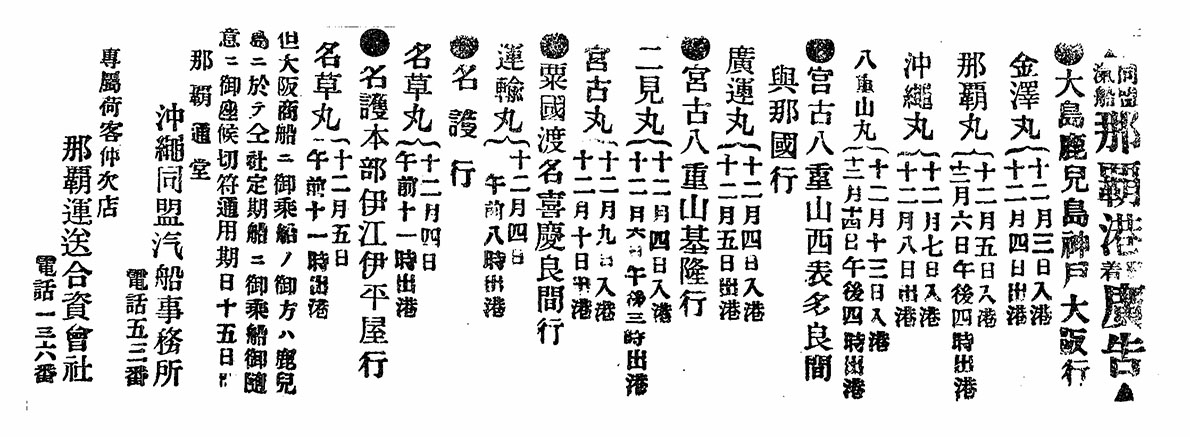 ▲同盟汽船那覇港着廣告▲
●大島鹿兒島神戸大阪行
金澤丸{十二月三日入港
十二月四日出港
那覇丸{十二月五日入港
十二月六日午後四時出港
沖繩丸{十二月七日入港
十二月八日出港
八重山丸{十二月十三日入港
十二月十四日午後四時出港
●宮古八重山西表多良間
與那國行
廣運丸{十二月四日入港
十二月五日出港
●宮古八重山基隆行
二見丸{十二月四日入港
十二月六日午後三時出港
宮古丸{十二月九日入港
十二月十日出港
●粟國渡名喜慶良間行
運輸丸{十二月四日
午前八時出港
●名護行
名草丸{十二月四日
午前十一時出港
●名護本部伊江伊平屋行
名草丸{十二月五日
午前十一時出港
但大阪商船ニ御乘船ノ御方ハ鹿兒
島ニ於テ仝社定期船ニ御乘船御隨
意ニ御座候切符通用期日十五日間
那覇通堂
沖繩同盟汽船事務所
電話五三番
專屬荷客仲次店
那覇運送合資會社
電話一三六番